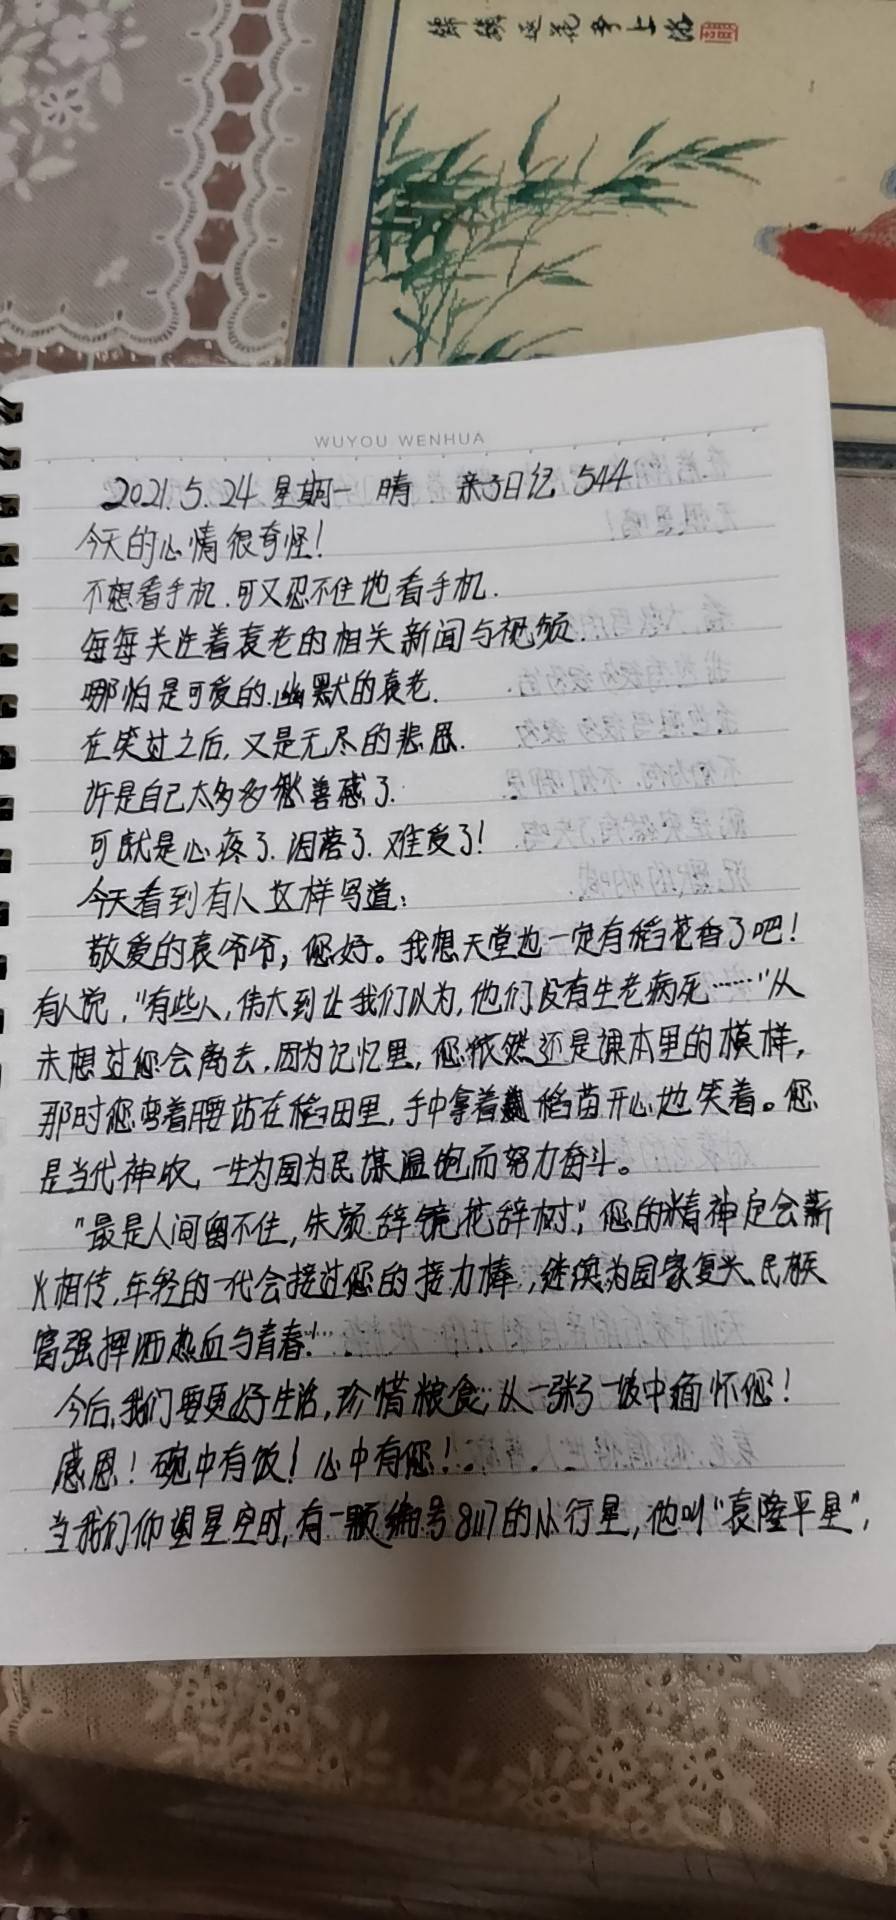 WUYOU WENHUA
2021.5.24 星期一 晴 亲子日记 544
今天的心情很奇怪!
不想看手机.可又忍不住地看手机.
每每关注着袁老的相关新闻与视频.
哪怕是可爱的.幽默的袁老.
在笑过之后,又是无尽的悲恩.
许是自己太多多愁善感了.
可就是心疼了.泪落了.难受了!
今天看到有人这样写道:
敬爱的袁爷爷,您好。我想天堂也一定有稻花香了吧!
有人说,"有些人,伟大到让我们以为,他们没有生老病死……"从
未想过您会离去,因为记忆里,您依然还是课本里的模样,
那时您弯着腰站在稻田里,手中拿着稻苗开心地笑着。您
是当代神农,一生为国为民谋温饱而努力奋斗。
"最是人间留不住,朱颜辞镜花辞树",您的精神定会薪
火相传,年轻的一代会接过您的接力棒,继续为国家复兴、民族
富强挥洒热血与青春!…
今后,我们要更好生活,珍惜粮食,从一粥一饭中缅怀您!
感恩!碗中有饭!心中有您!
当我们仰望星空时,有一颗编号8117的小行星,他叫"袁隆平星",